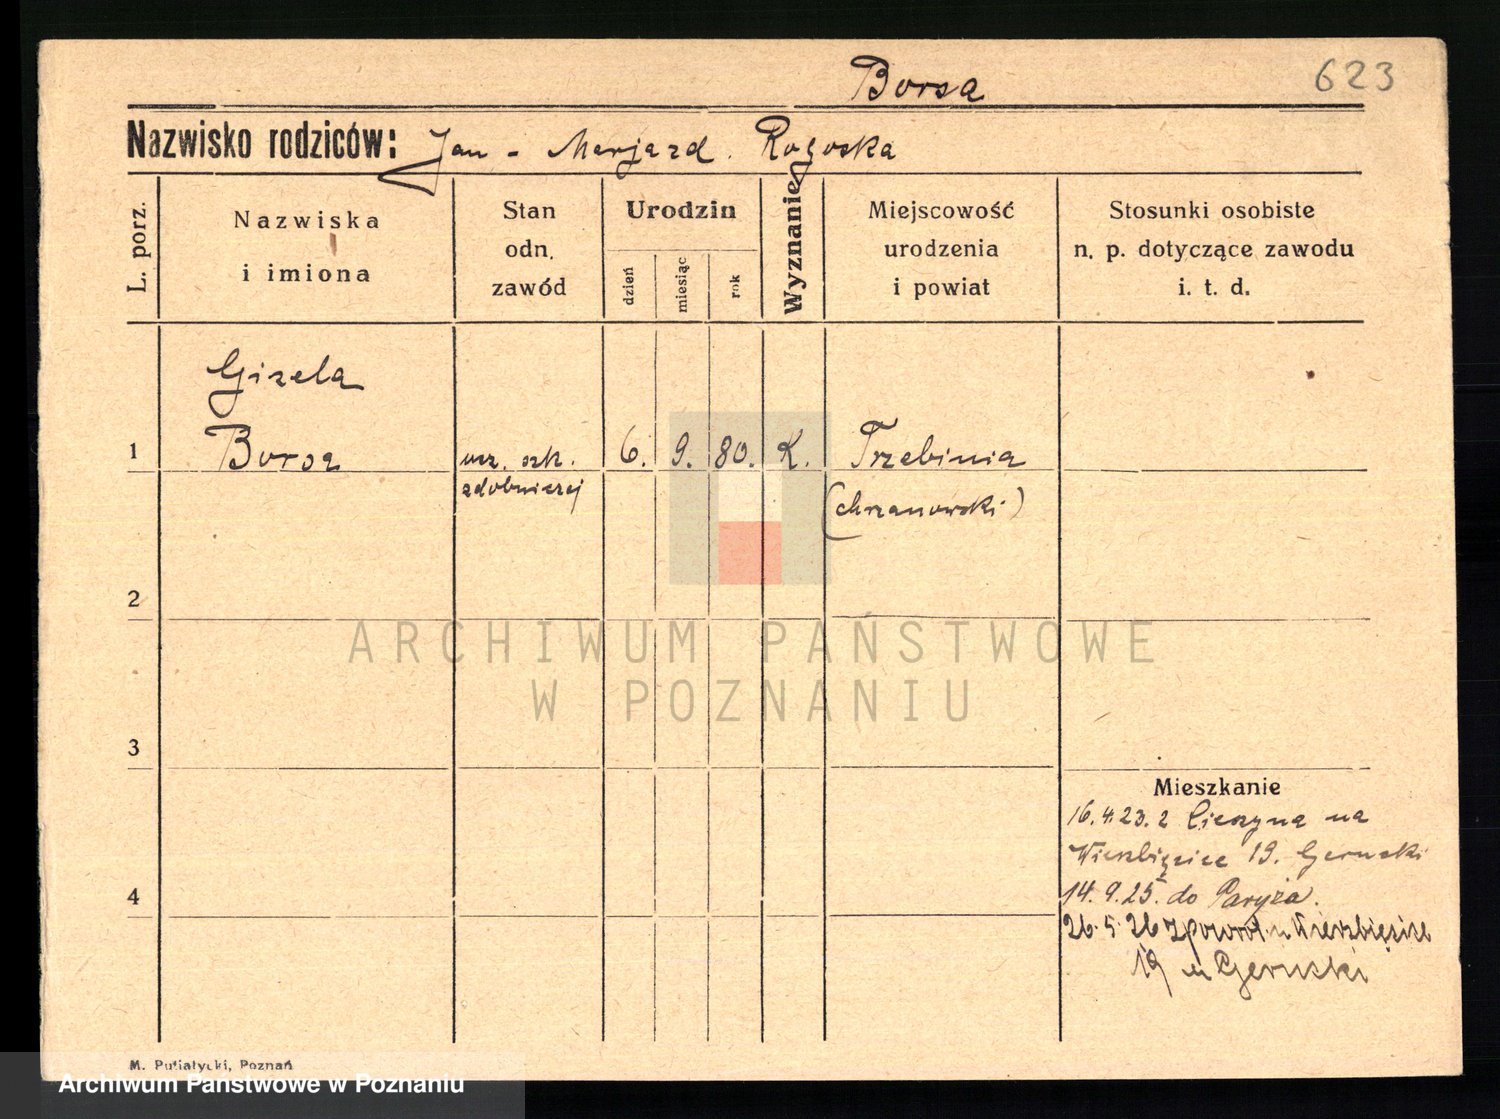 Borsa
623
Nazwisko rodziców: Jan - Marjazd. Rogoska
L. porz.
Nazwiska
i imiona
Stan
odn.
zawód
Urodzin
dzień
miesiąc
rok
Wyznanie
Miejscowość
urodzenia
i powiat
Stosunki osobiste
n. p. dotyczące zawodu
i. t. d.
Gizela
1 Borsa ucz. szk. 6. 9. 80. K. Trzebinia
zdobniczej (chrzanowski)
2
ARCHIWUM PAŃSTWOWE
W POZNANIU
3
Mieszkanie
16.4.23. z Cieszyna na
Wierzbięcice 19.
4 14.9.25. do Paryża.
26.5.26 z powrot. Wierzbięcice
19
M. Putiatycki, Poznań
Archiwum Państwowe w Poznaniu